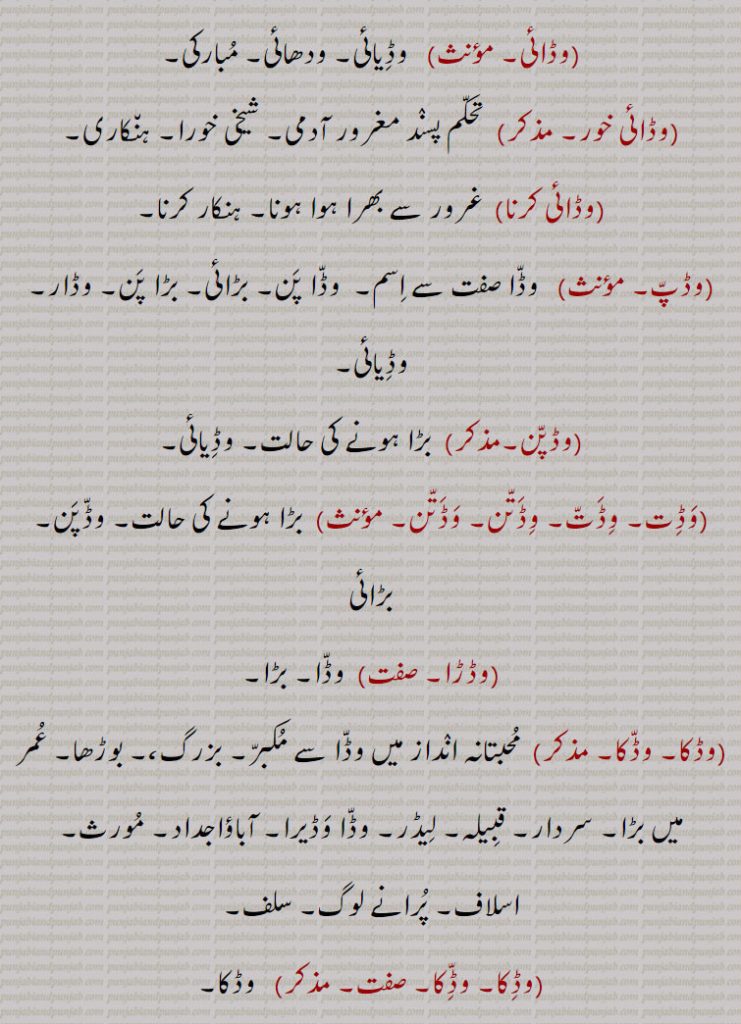 (وڈائی۔ مؤنث) وڈِیائی۔ ودھائی۔ مُبارکی۔
(وڈائی خور۔ مذکر) تحکّم پسنْد مغرور آدمی۔ شیخی خورا۔ ہنّکاری۔
(وڈائی کرنا) غرور سے بھرا ہوا ہونا۔ ہنکار کرنا۔
(وڈپّ۔ مؤنث) وڈّا صفت سے اِسم۔ وڈّا پَن۔ بڑائی۔ بڑا پَن۔ وڈار۔
وڈِیائی۔
(وڈپّن۔مذکر) بڑا ہونے کی حالت۔ وڈِیائی۔
(وَڈِت۔ وِڈَتّ۔ وِڈَتّن۔ وَڈَتّن۔ مؤنث) بڑا ہونے کی حالت۔ وڈّپَن۔
بڑائی
(وڈڑا۔ صفت) وڈّا۔ بڑا۔
(وڈکا۔ وڈّکا۔ مذکر) مُحبتانہ انْداز میں وڈّا سے مُکبرّ۔ بزرگ،۔ بوڑھا۔ عُمر
میں بڑا۔ سردار۔ قبِیلہ۔ لِیڈر۔ وڈّا وَڈیرا۔ آباؤاجداد۔ مُورث۔
اسلاف۔ پُرانے لوگ۔ سلف۔
(وڈِکا۔ وڈِّکا۔ صفت۔ مذکر) وڈکا۔